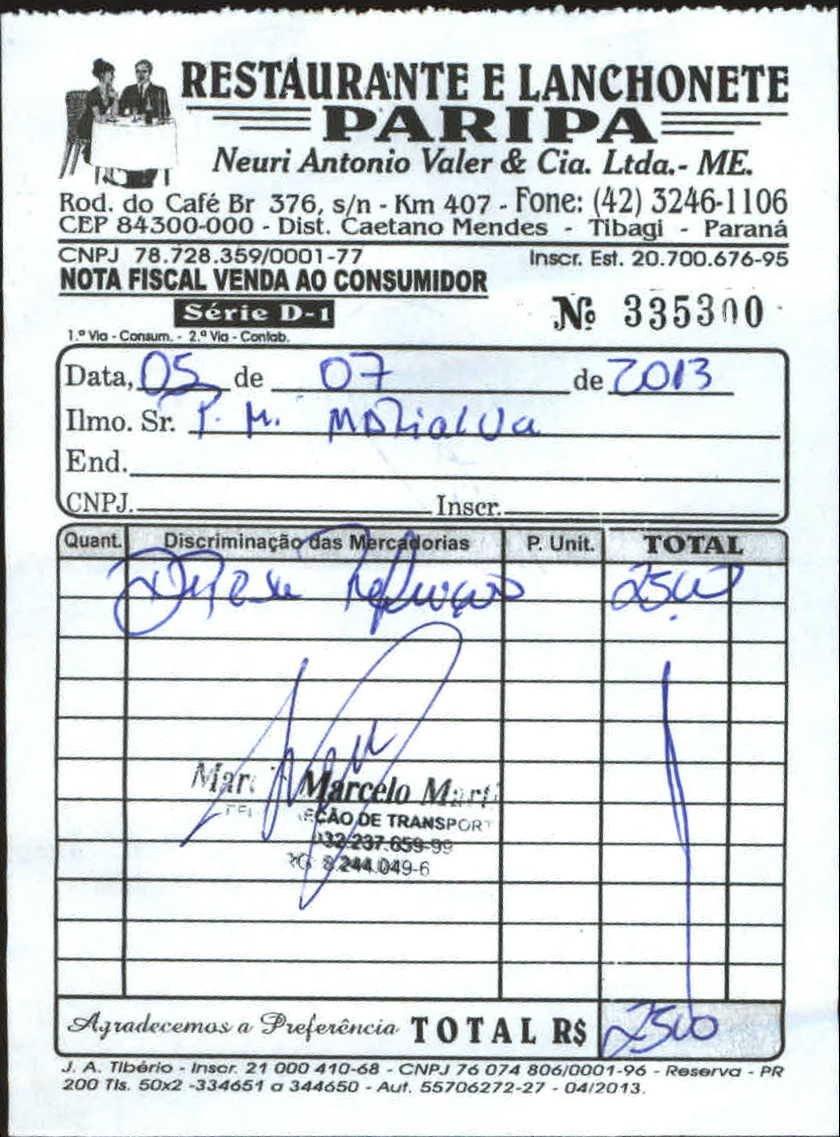 RESTAURANTE E LANCHONETE
PARIPA
Neuri Antonio Valer & Cia. Ltda.- ME.
Rod. do Café Br 376, s/n - Km 407 - Fone: (42) 3246-1106
CEP 84300-000 - Dist. Caetano Mendes - Tibagi - Paraná
CNPJ 78.728.359/0001-77 Inscr. Est. 20.700.676-95
NOTA FISCAL VENDA AO CONSUMIDOR
Série D-1 Nº 335300
1.ª Via - Consum. - 2.ª Via - Contab.
Data, 05 de 07 de 2013
Ilmo. Sr. P. M. Marialva
End.
CNPJ. Inscr.
Quant. Discriminação das Mercadorias P. Unit. TOTAL
2500
Marcelo Marti
EÇÃO DE TRANSPORT
032.237.659-99
RG 8.244.049-6
Agradecemos a Preferência TOTAL R$ 2500
J. A. Tibério - Inscr. 21 000 410-68 - CNPJ 76 074 806/0001-96 - Reserva - PR
200 Tls. 50x2 -334651 a 344650 - Aut. 55706272-27 - 04/2013.